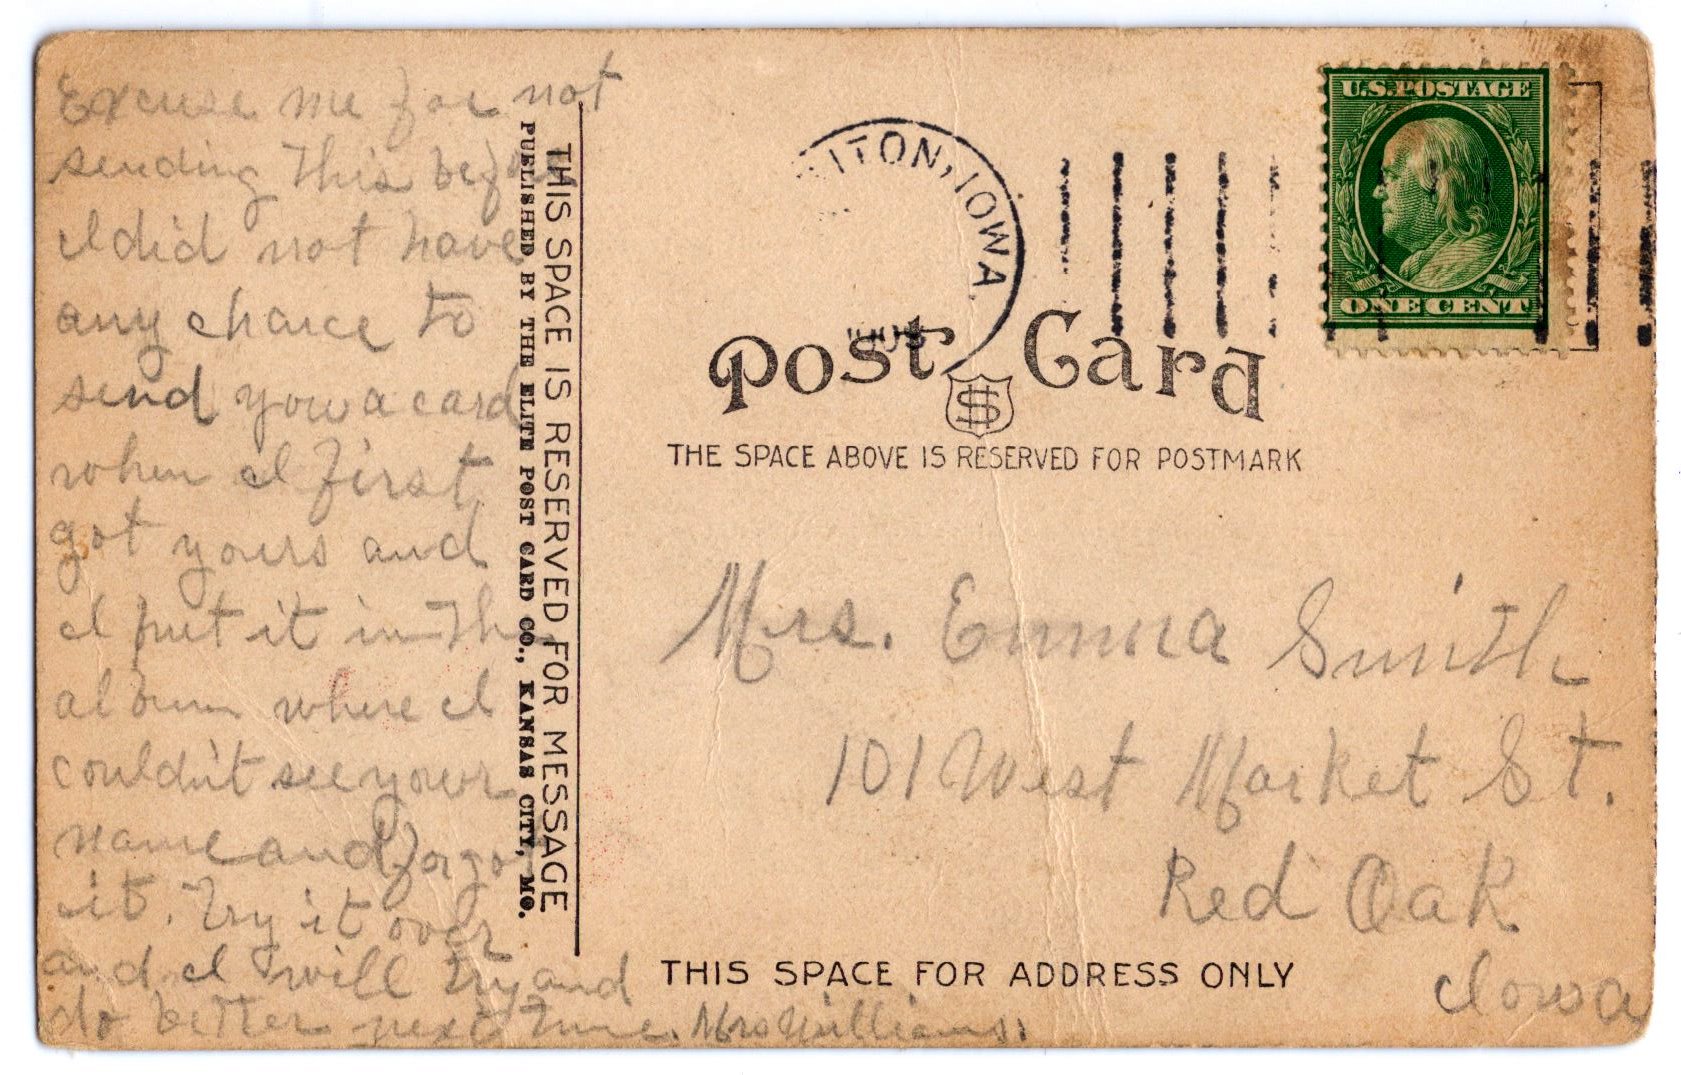 Excuse me for not
sending this before
I did not have
any chance to
send you a card
when I first
got yours and
I put it in the
album where I
couldn't see your
name and forgot
it. Try it over
and I will try and
do better next time. Mrs Williams.
THIS SPACE IS RESERVED FOR MESSAGE
PUBLISHED BY THE ELITE POST CARD CO., KANSAS CITY, MO.
ITON, IOWA.
U.S. POSTAGE
ONE CENT
Post Card
THE SPACE ABOVE IS RESERVED FOR POSTMARK
Mrs. Emma Smith
101 West Market St.
Red Oak
Iowa
THIS SPACE FOR ADDRESS ONLY